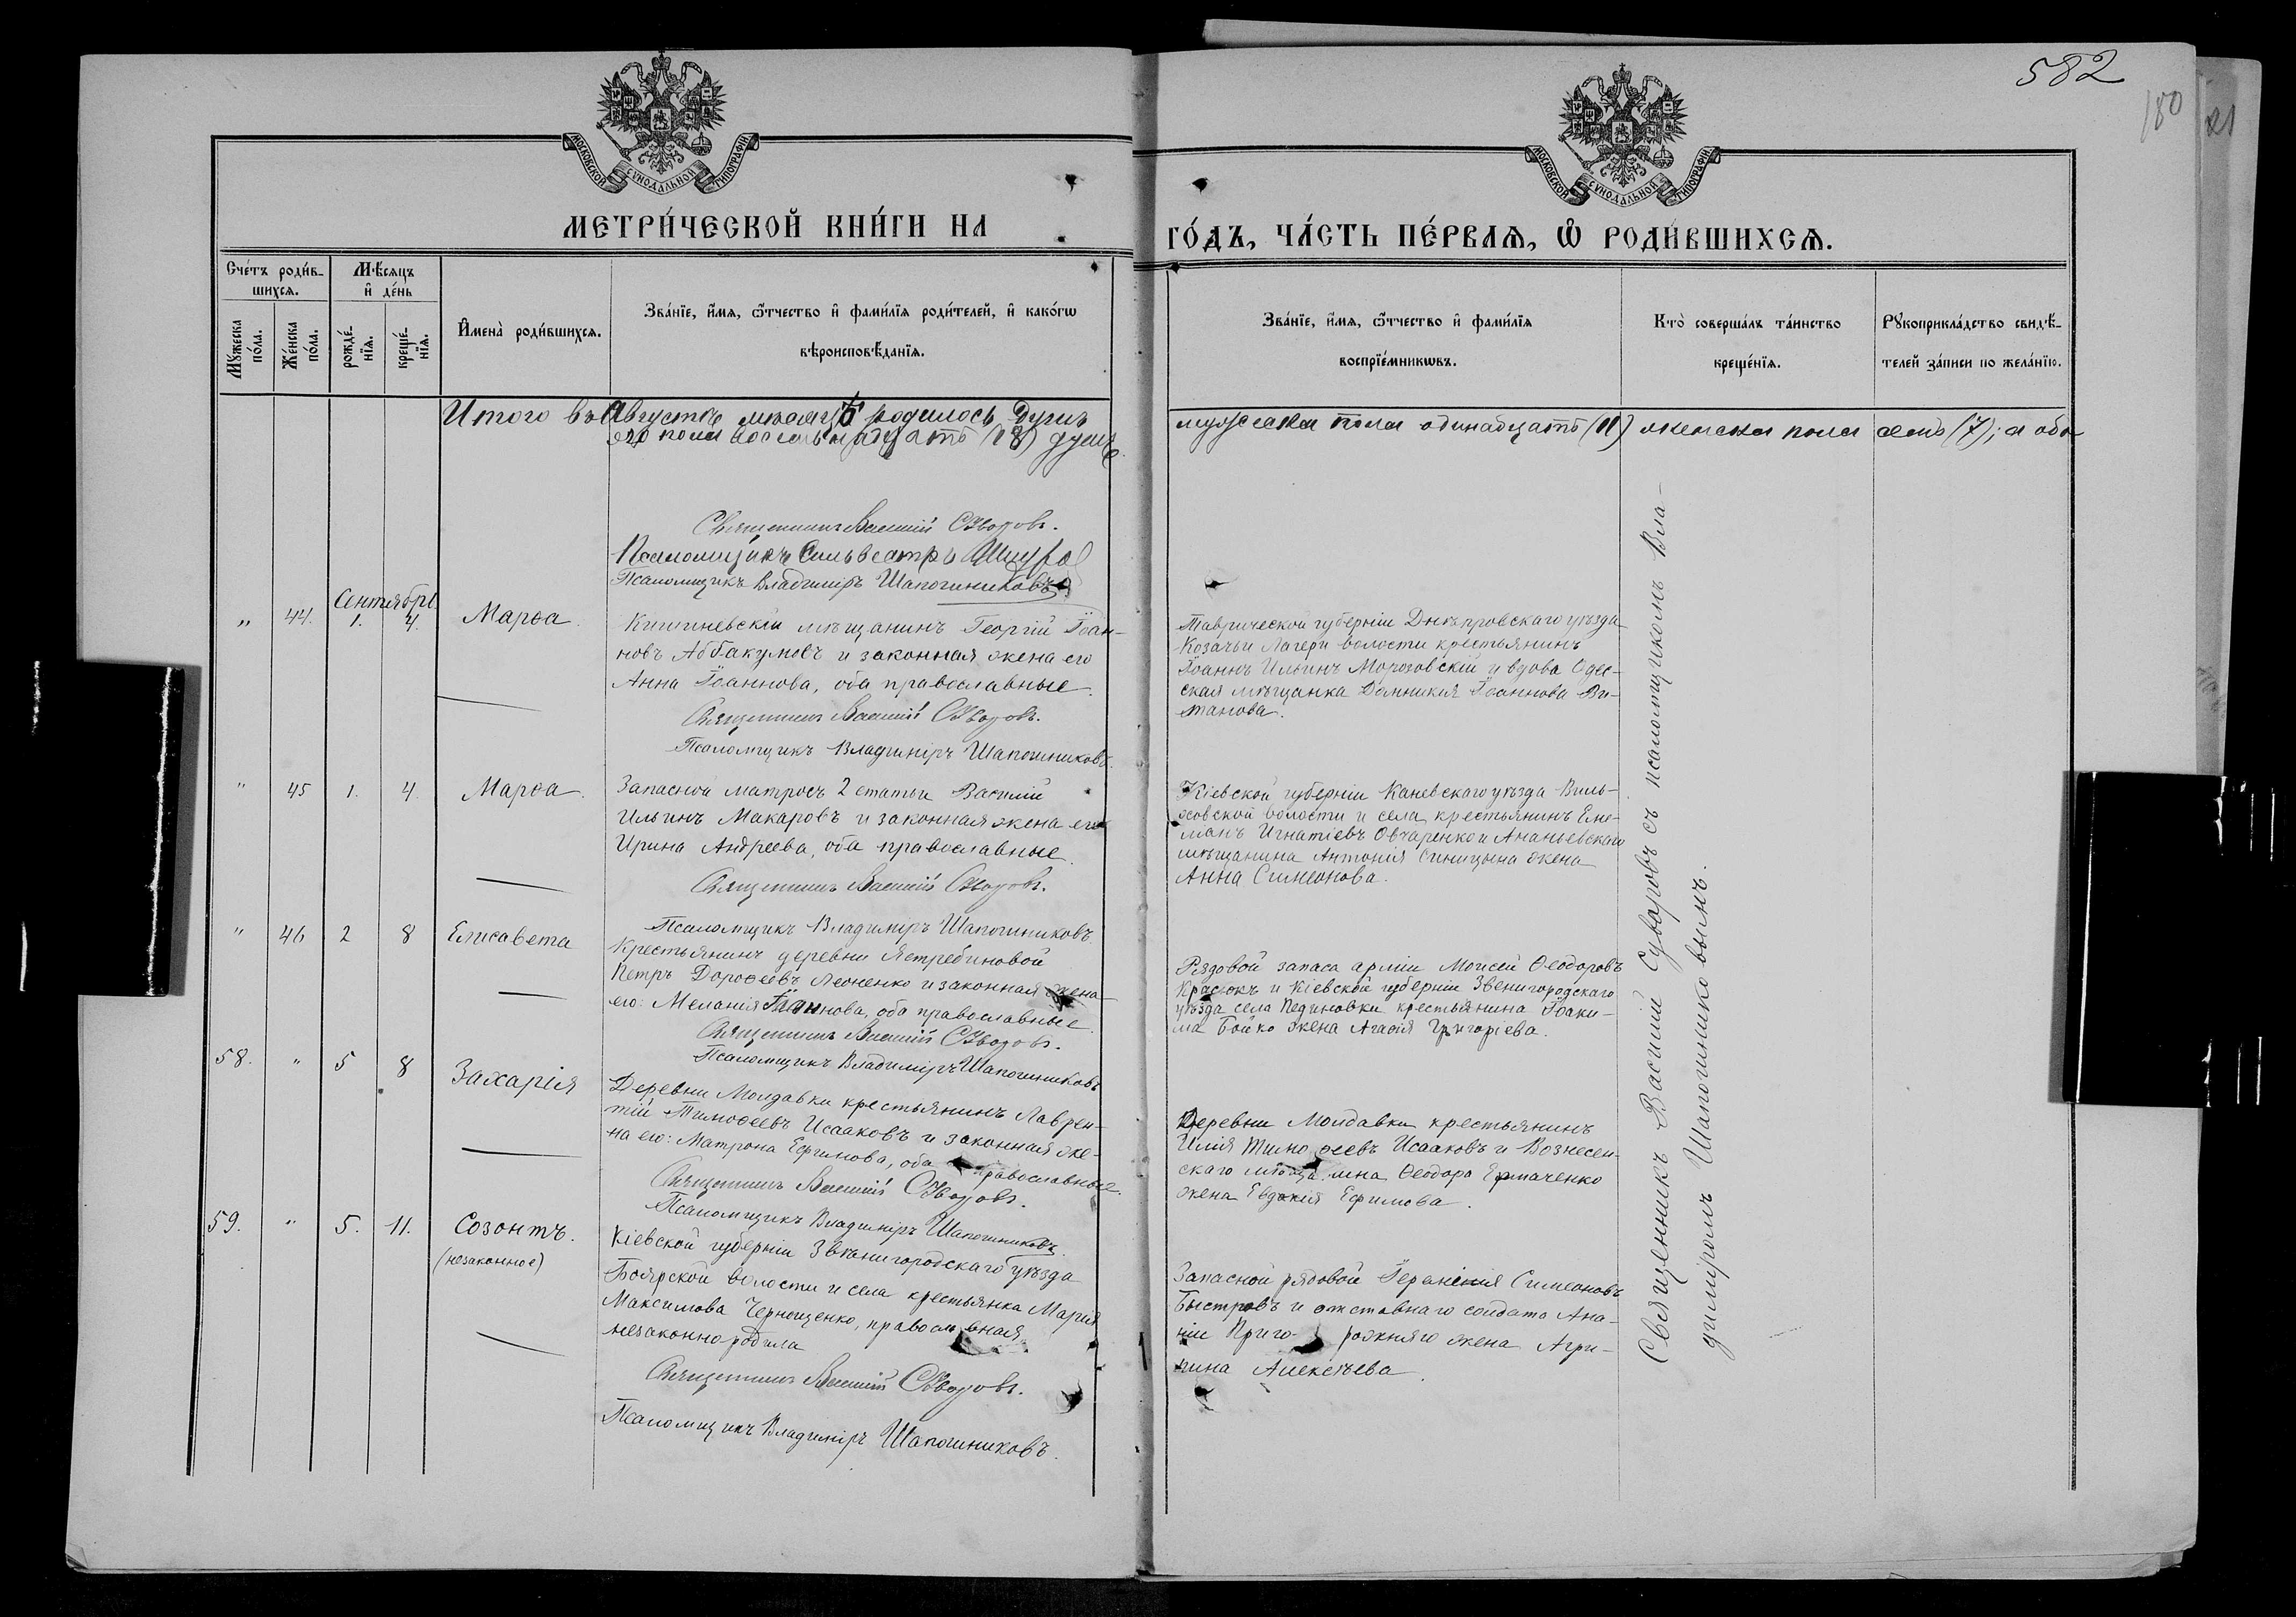 582
180
21
МОСКОВСКОЙ СѴНОДАЛЬНОЙ ТИПОГРАФІИ.
МОСКОВСКОЙ СѴНОДАЛЬНОЙ ТИПОГРАФІИ.
МЕТРИ́ЧЕСКОЙ КНИ́ГИ НА
ГО́ДЪ, ЧА́СТЬ ПЕ́РВАѦ, Ѡ҆ РОДИ́ВШИХСѦ.
Сче́тъ роди́в-
шихсѧ.
Мѣ́сѧцъ
и҆ де́нь
Мꙋ́жеска
по́ла.
Же́нска
по́ла.
рожде́-
нїѧ.
креще́-
нїѧ.
И҆мена̀ роди́вшихсѧ.
Зва́нїе, и҆́мѧ, ѻ҆́тчество и҆ фами́лїѧ роди́телей, и҆ како́гѡ
вѣроисповѣ́данїѧ.
Зва́нїе, и҆́мѧ, ѻ҆́тчество и҆ фами́лїѧ
воспрїе́мникѡвъ.
Кто̀ соверша́лъ та́инство
креще́нїѧ.
Рꙋкоприкла́дство свидѣ́-
телей за́писи по жела́нїю.
Итого въ Августѣ мѣсяцѣ родилось душъ
мужеска пола одинадцать (11) женска пола семь (7); а обо
его пола восемьнадцать (18) душъ.
Священникъ Василій Суворовъ.
Псаломщикъ Сильвестръ
Псаломщикъ Владиміръ Шапошниковъ
Сентябрь
„ 44. 1. 4. Марѳа.
Кишиневскій мѣщанинъ Георгій Іоан-
новъ Аббакумовъ и законная жена его
Анна Іоаннова, оба православные.
Священникъ Василій Суворовъ.
Псаломщикъ Владиміръ Шапошниковъ.
Таврической губерніи Днѣпровскаго уѣзда
Козачьи Лагери волости крестьянинъ
Іоаннъ Ильинъ Морозовскій и вдова Одес-
ская мѣщанка Домникія Іоаннова Ви-
танова.
„ 45 1. 4. Марѳа.
Запасной матросъ 2 статьи Василій
Ильинъ Макаровъ и законная жена его
Ирина Андреева, оба православные.
Священникъ Василій Суворовъ.
Псаломщикъ Владиміръ Шапошниковъ.
Кіевской губерніи Каневскаго уѣзда Виль-
ховской волости и села крестьянинъ Ели-
манъ Игнатіевъ Овчаренко и Ананьевскаго
мѣщанина Антонія Синицына жена
Анна Симеонова.
„ 46 2 8 Елисавета
Крестьянинъ деревни Ястребиновой
Петръ Дорофеевъ Леоненко и законная жена
его: Меланія Іоаннова, оба православные.
Священникъ Василій Суворовъ.
Псаломщикъ Владиміръ Шапошниковъ
Рядовой запаса арміи Моисей Ѳеодоровъ
Красюкъ и Кіевской губерніи Звенигородскаго
уѣзда села Пединовки крестьянина Іоаки-
ма Бойко жена Агафія Григоріева.
58. „ 5 8 Захарія
Деревни Молдавки крестьянинъ Лаврен-
тій Тимофеевъ Исааковъ и законная же-
на его: Матрона Ефимова, оба православные.
Священникъ Василій Суворовъ.
Псаломщикъ Владиміръ Шапошниковъ.
Деревни Молдавки крестьянинъ
Илія Тимофеевъ Исааковъ и Вознесен-
скаго мѣщанина Ѳеодора Ермаченко
жена Евдокія Ефимова.
59. „ 5. 11. Созонтъ.
(незаконное)
Кіевской губерніи Звенигородскаго уѣзда
Боярской волости и села крестьянка Марія
Максимова Чернощенко, православная,
незаконно родила
Священникъ Василій Суворовъ.
Псаломщикъ Владиміръ Шапошниковъ.
Запасной рядовой Симеоновъ
Быстровъ и отставнаго солдата Ана-
ніи Пригорожняго жена Агри-
пина Алексѣева.
Священникъ Василій Суворовъ съ псаломщикомъ Вла-
диміромъ Шапошниковымъ.